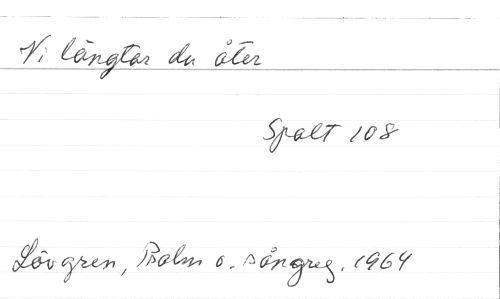 Vi längtar du åter
Spalt 108
Lövgren, Psalm o. sångreg. 1964